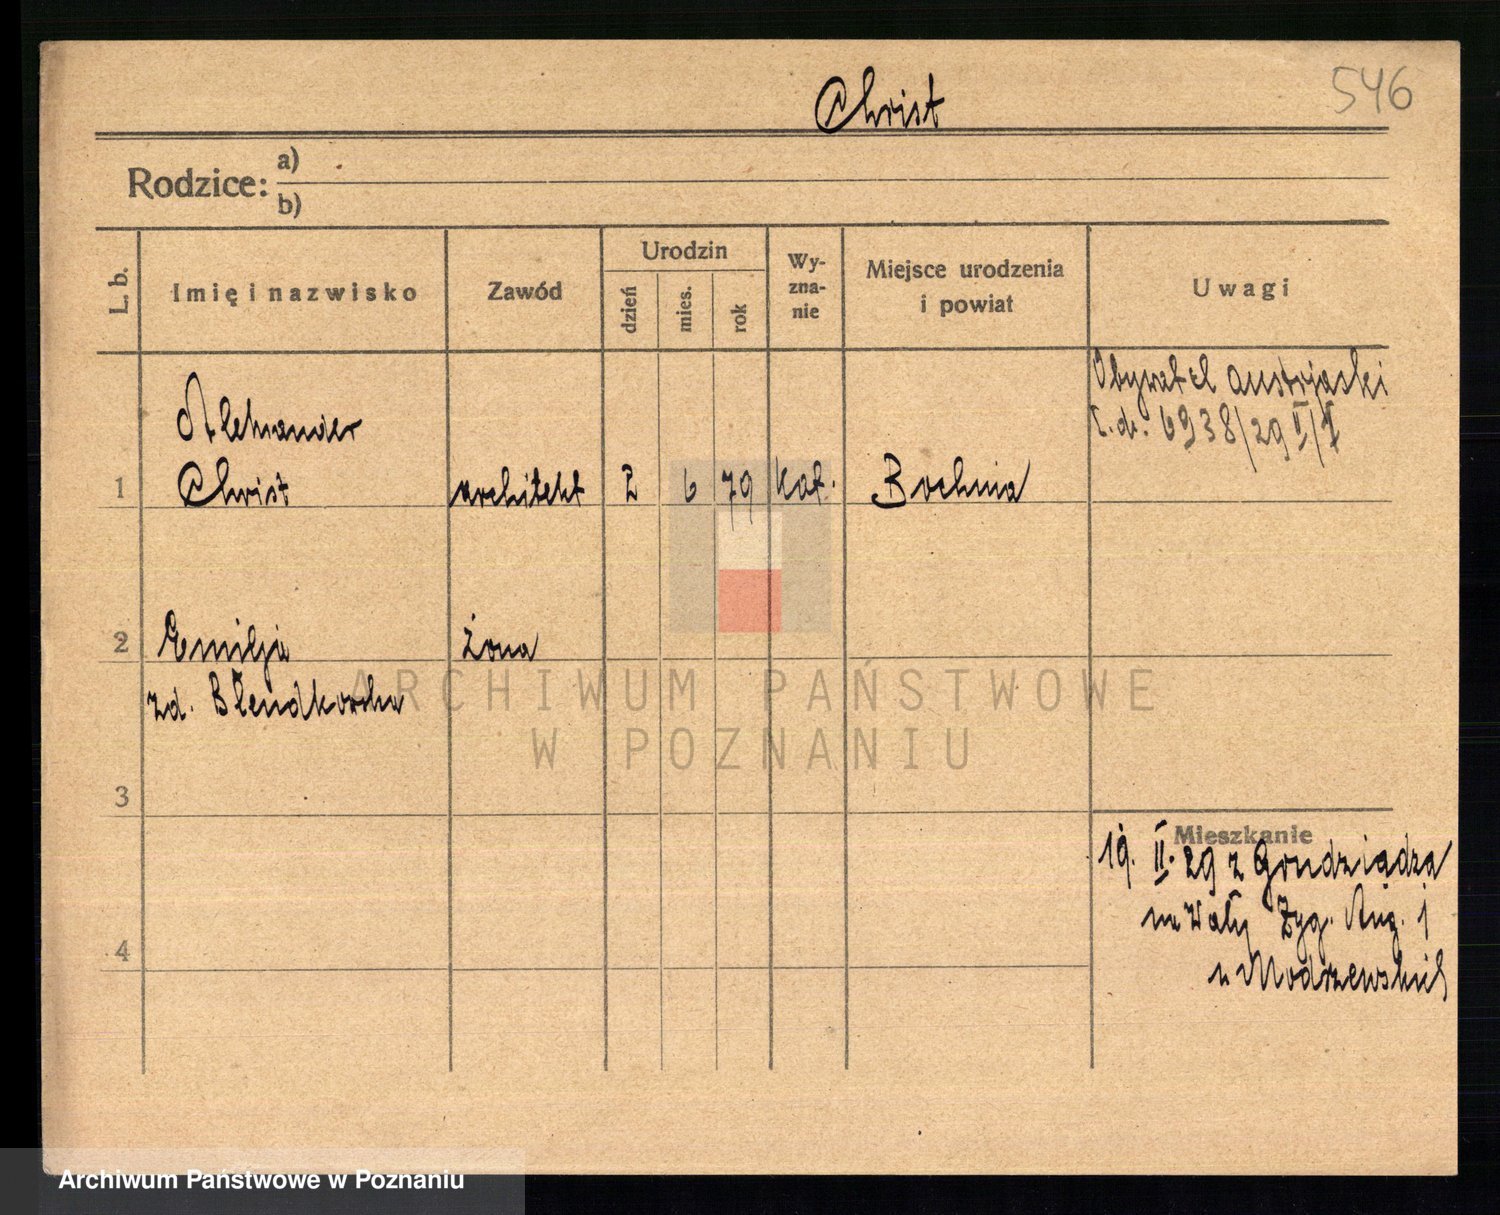 Christ
546
Rodzice: a)
b)
L. b.
Imię i nazwisko
Zawód
Urodzin
dzień
mies.
rok
Wy-
zna-
nie
Miejsce urodzenia
i powiat
Uwagi
Obywatel austrjacki
6938/29 II/I
Aleksander
1 Christ architekt 2 6 79 kat. Bochnia
2 Emilja żona
zd.
3
Mieszkanie
19. II. 29 z Grudziądza
na Wały Zyg. Aug. 1
4
u Modrzewskich
ARCHIWUM PAŃSTWOWE
W POZNANIU
Archiwum Państwowe w Poznaniu